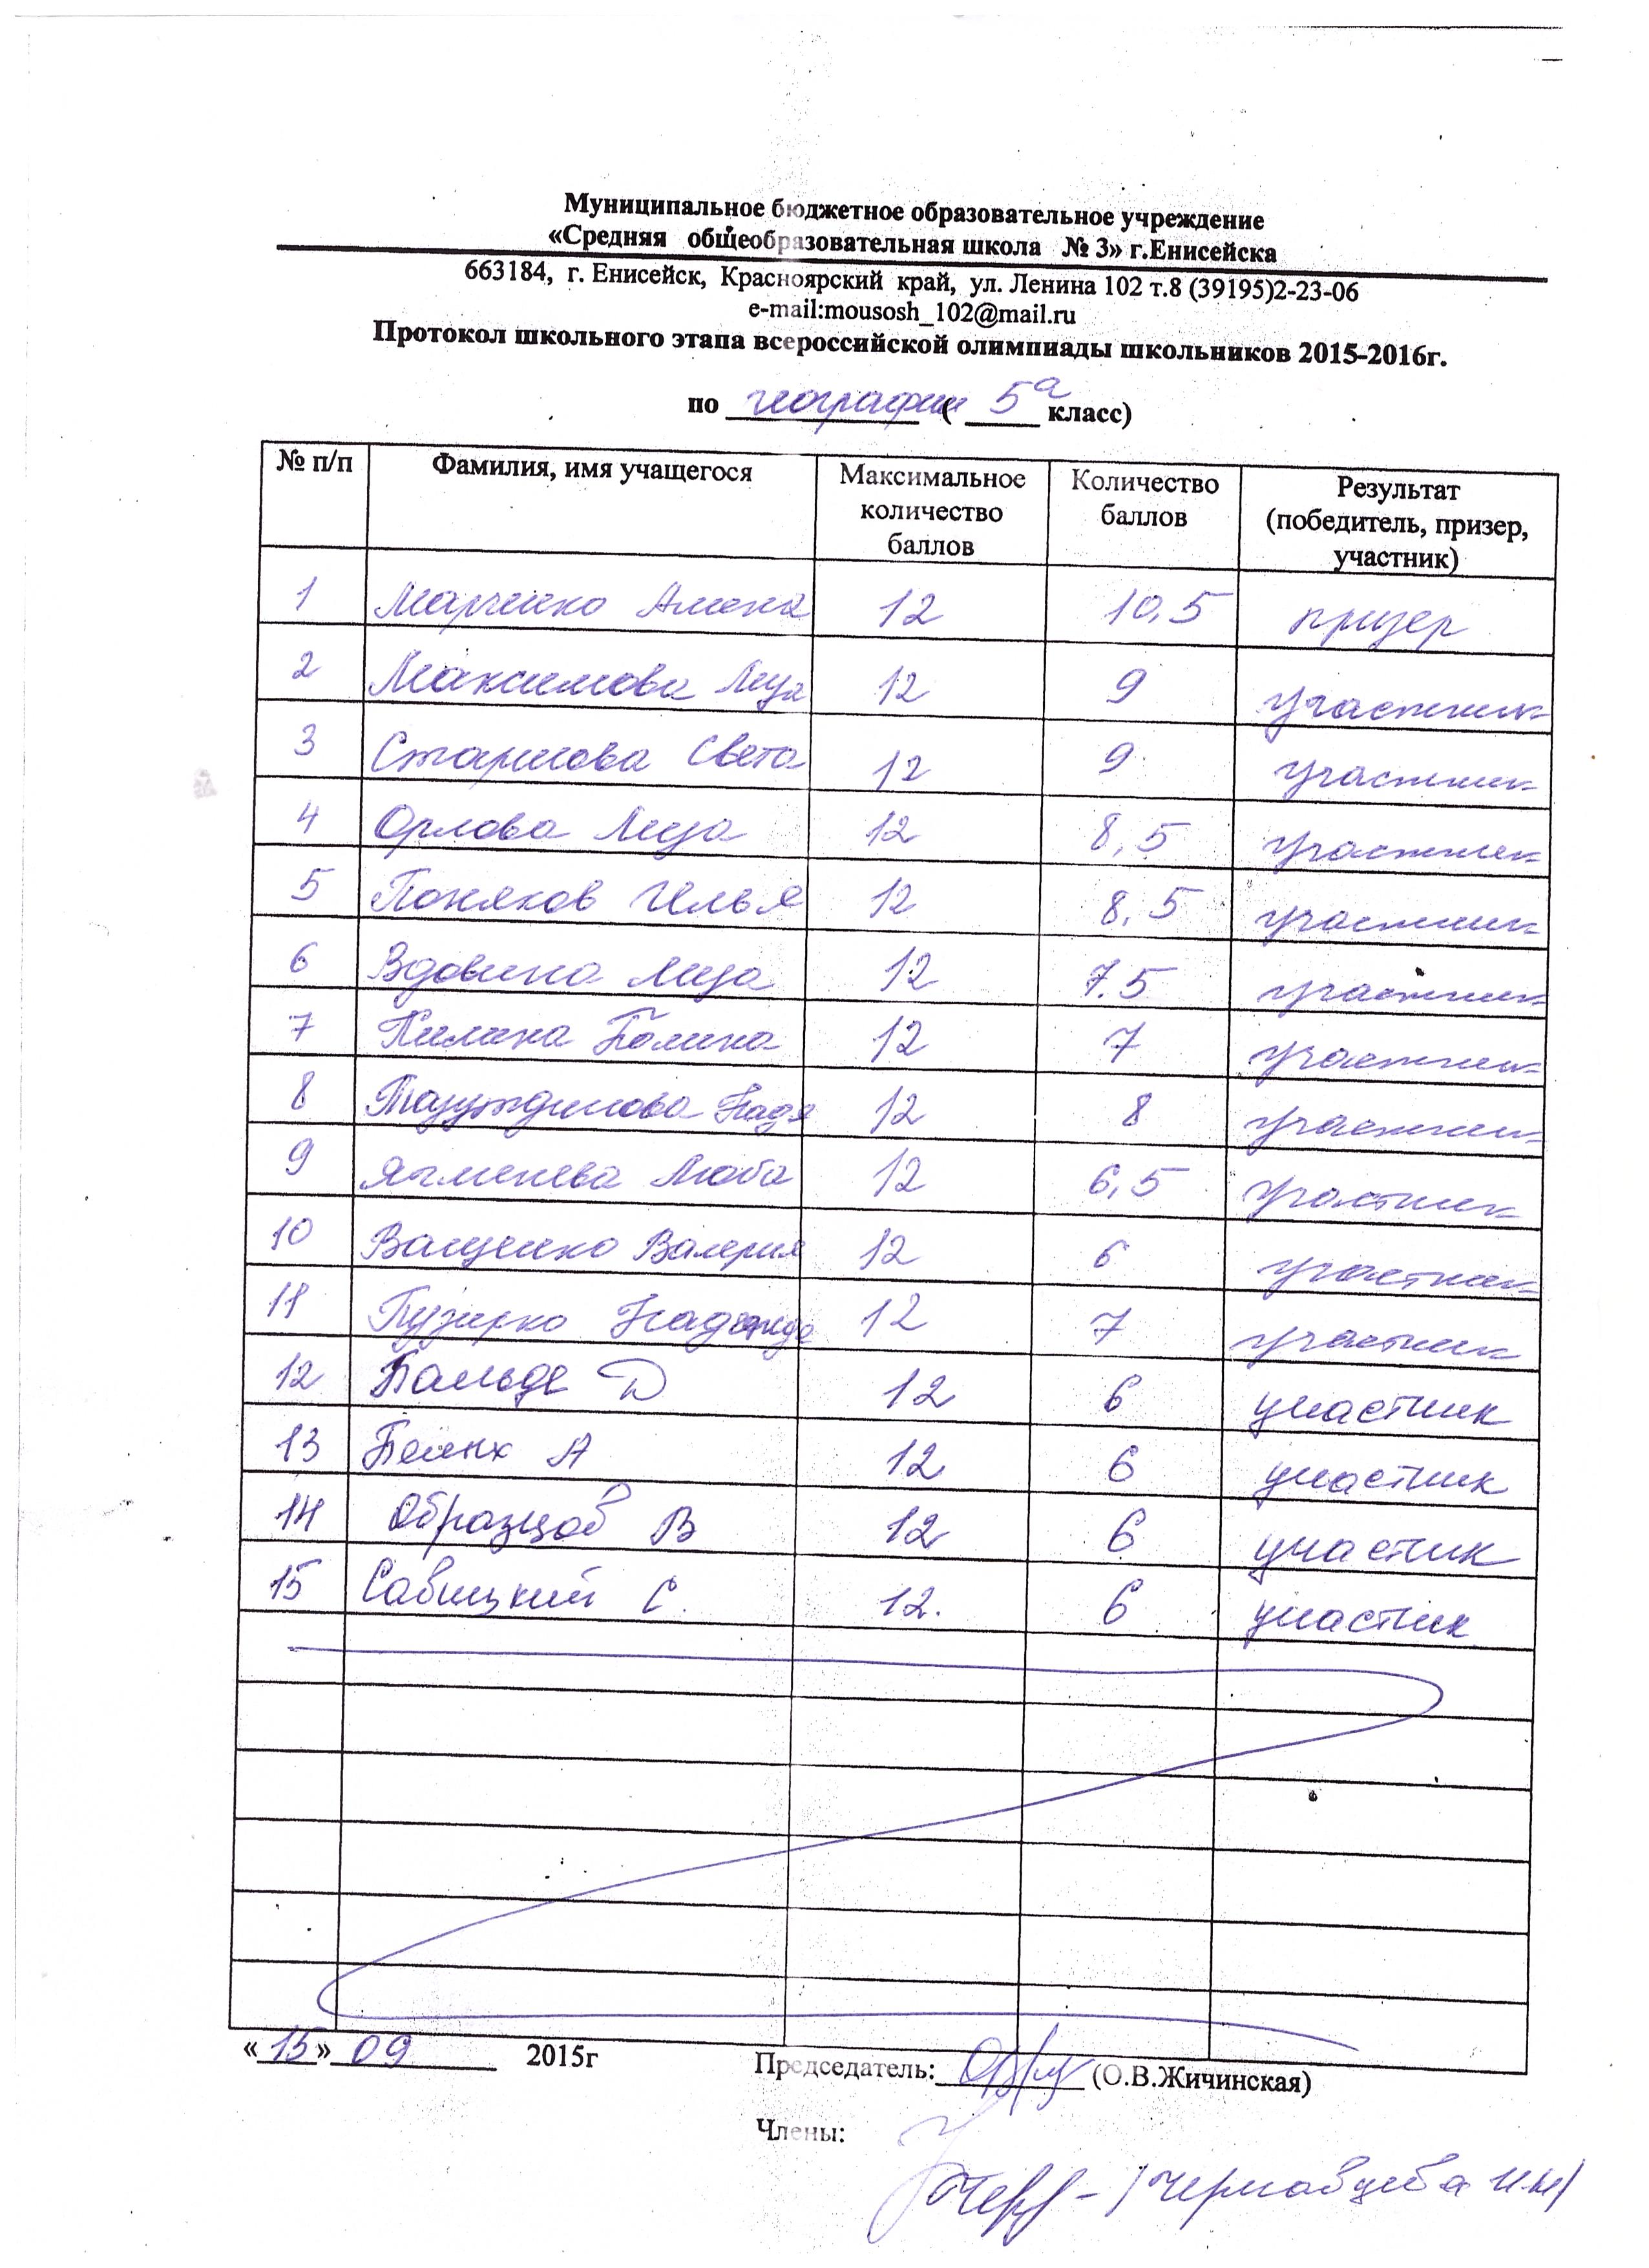 Муниципальное бюджетное образовательное учреждение
«Средняя общеобразовательная школа № 3» г.Енисейска
663184, г. Енисейск, Красноярский край, ул. Ленина 102 т.8 (39195)2-23-06
e-mail:mousosh_102@mail.ru
Протокол школьного этапа всероссийской олимпиады школьников 2015-2016г.
по географии ( 5а класс)
№ п/п Фамилия, имя учащегося Максимальное количество баллов Количество баллов Результат (победитель, призер, участник)
1 Марченко Алена 12 10,5 призер
2 Максимова Лиза 12 9 участник
3 Старикова Света 12 9 участник
4 Орлова Лиза 12 8,5 участник
5 Илья 12 8,5 участник
6 Вдовина Лиза 12 7.5 участник
7 Полина 12 7 участник
8 Надя 12 8 участник
9 Ячменева Люба 12 6,5 участник
10 Ващенко Валерия 12 6 участник
11 Надежда 12 7 участник
12 Бальде Д 12 6 участник
13 А 12 6 участник
14 Образцов В 12 6 участник
15 Савицкий С. 12. 6 участник
«15» 09 2015г Председатель: (О.В.Жичинская)
Члены: